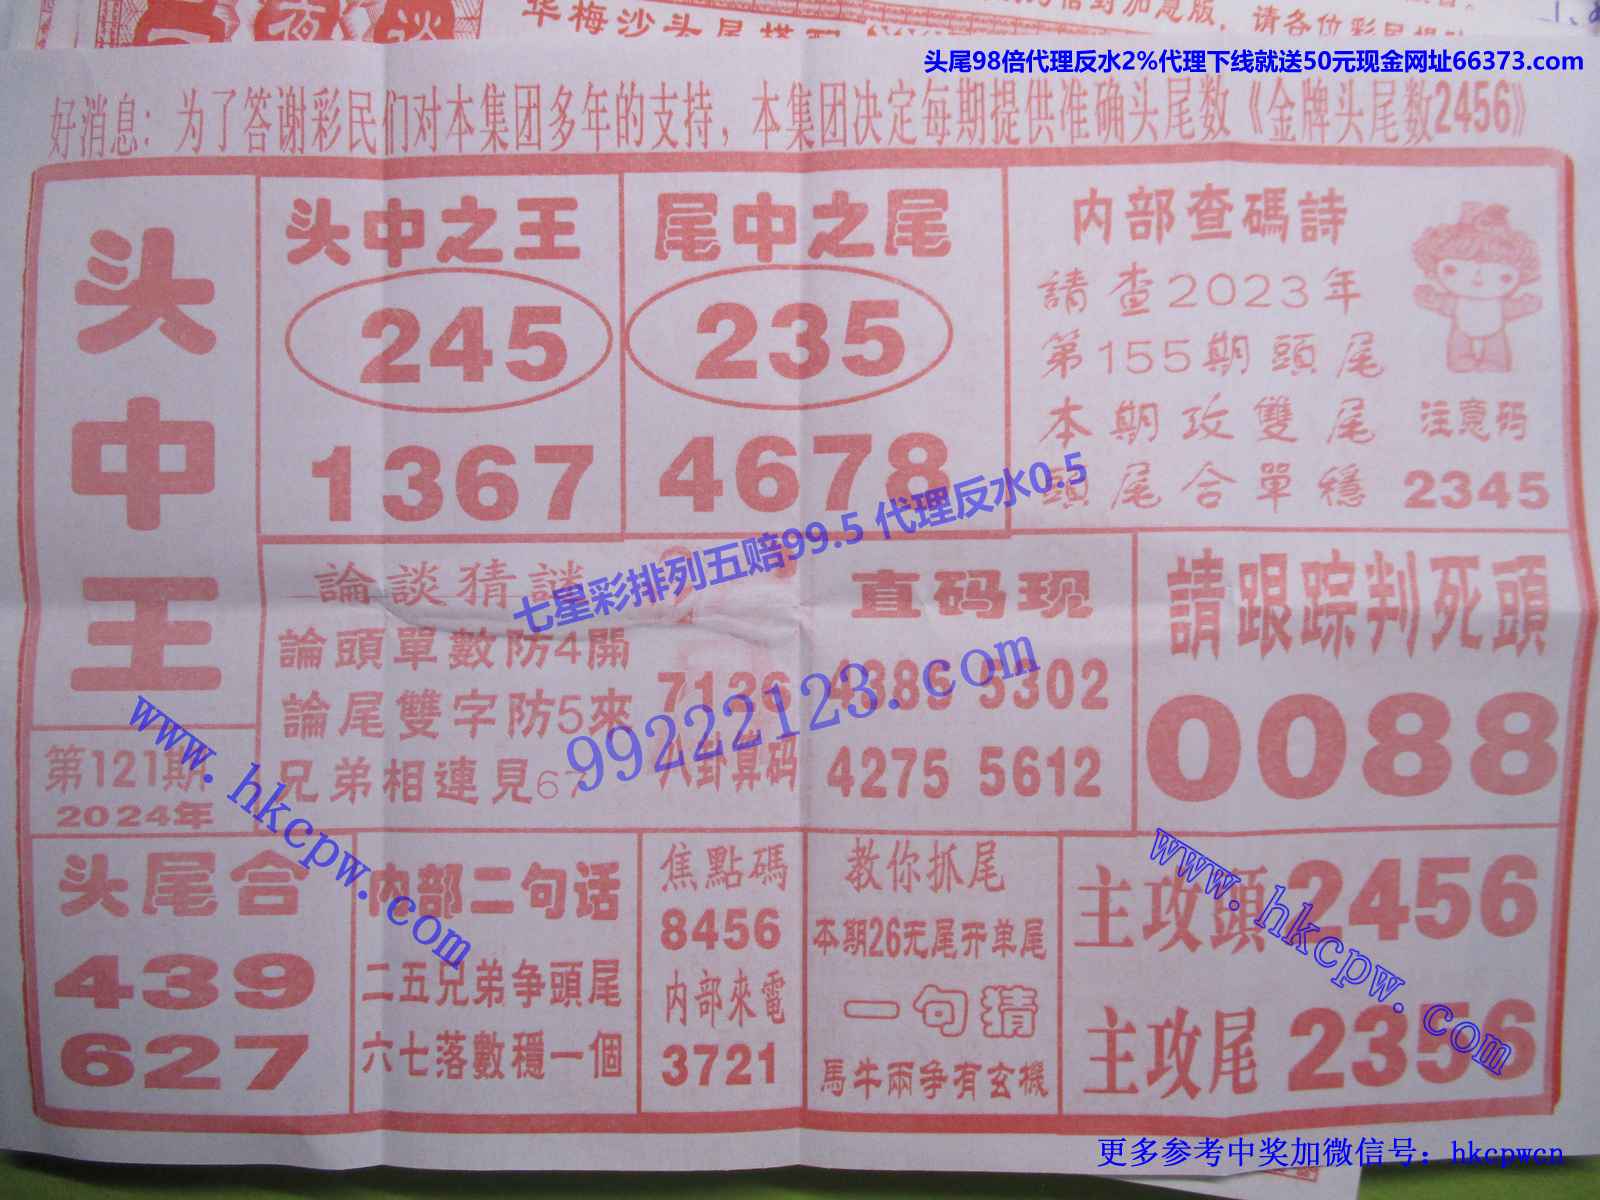 华梅沙头尾搭配
头尾98倍代理反水2%代理下线就送50元现金网址66373.com
好消息：为了答谢彩民们对本集团多年的支持，本集团决定每期提供准确头尾数《金牌头尾数2456》
头中王
第121期
2024年
头中之王
245
1367
尾中之尾
235
4678
内部查碼詩
請查2023年
第155期頭尾
本期攻雙尾
頭尾合單穩
注意码
2345
論談猜謎
論頭單數防4開
論尾雙字防5來
兄弟相連見67
7126
八卦算码
直码现
4386 5302
4275 5612
請跟踪判死頭
0088
头尾合
439
627
内部二句话
二五兄弟争頭尾
六七落數穩一個
焦點碼
8456
内部來電
3721
教你抓尾
本期26无尾开单尾
一句猜
馬牛兩争有玄機
主攻頭2456
主攻尾2356
七星彩排列五赔99.5 代理反水0.5
99222123.com
www.hkcpw.com
www.hkcpw.com
更多参考中奖加微信号：hkcpwcn